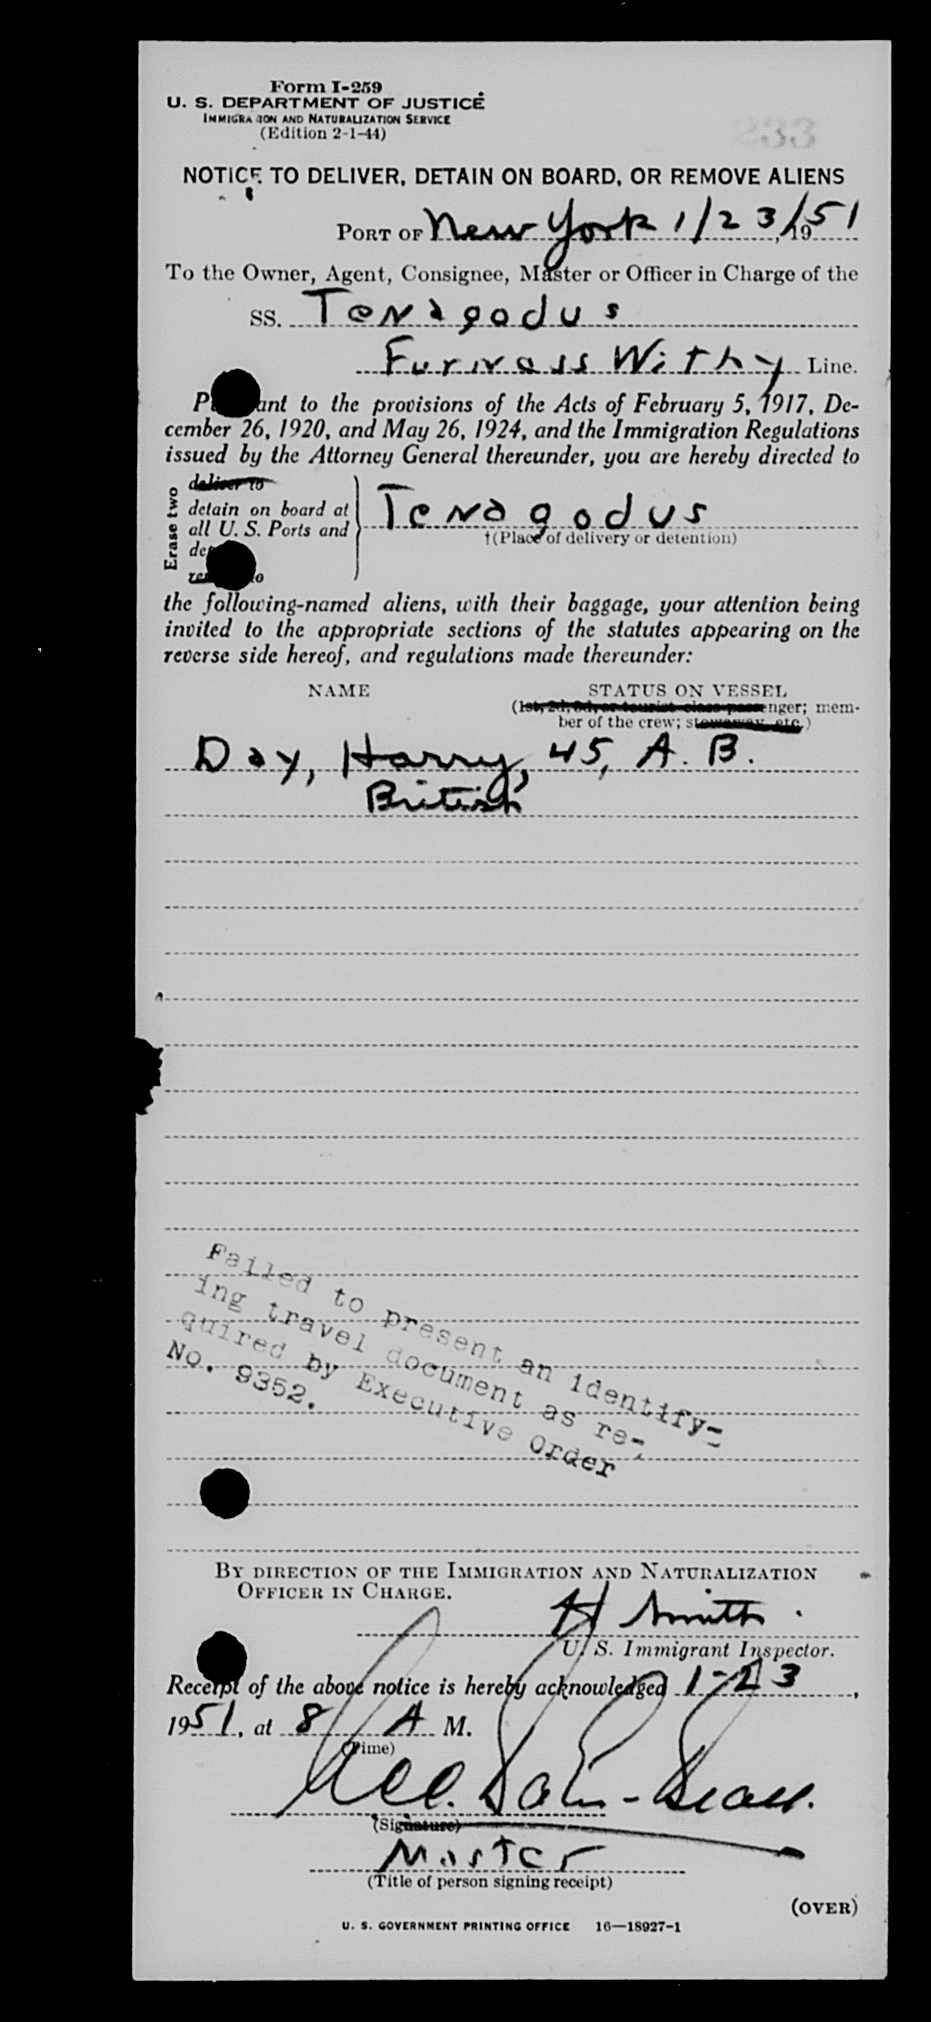 Form I-259
U. S. DEPARTMENT OF JUSTICE
IMMIGRATION AND NATURALIZATION SERVICE
(Edition 2-1-44)
233
NOTICE TO DELIVER, DETAIN ON BOARD, OR REMOVE ALIENS
PORT OF New York 1/23/, 1951
To the Owner, Agent, Consignee, Master or Officer in Charge of the
SS. Tenagodus
Furness Withy Line.
Pursuant to the provisions of the Acts of February 5, 1917, De-
cember 26, 1920, and May 26, 1924, and the Immigration Regulations
issued by the Attorney General thereunder, you are hereby directed to
Erase two
deliver to
detain on board at
all U. S. Ports and
Tenagodus
†(Place of delivery or detention)
the following-named aliens, with their baggage, your attention being
invited to the appropriate sections of the statutes appearing on the
reverse side hereof, and regulations made thereunder:
NAME STATUS ON VESSEL
(1st, 2d, 3d, or tourist class passenger; mem-
ber of the crew; stowaway, etc.)
Day, Harry, 45, A. B.
British
Failed to present an identify-
ing travel document as re-
quired by Executive Order
No. 9352.
BY DIRECTION OF THE IMMIGRATION AND NATURALIZATION
OFFICER IN CHARGE.
H Smith.
U. S. Immigrant Inspector.
Receipt of the above notice is hereby acknowledged 1-23,
1951, at 8 A M.
(Time)
(Signature)
Master
(Title of person signing receipt)
(OVER)
U. S. GOVERNMENT PRINTING OFFICE 16—18927-1